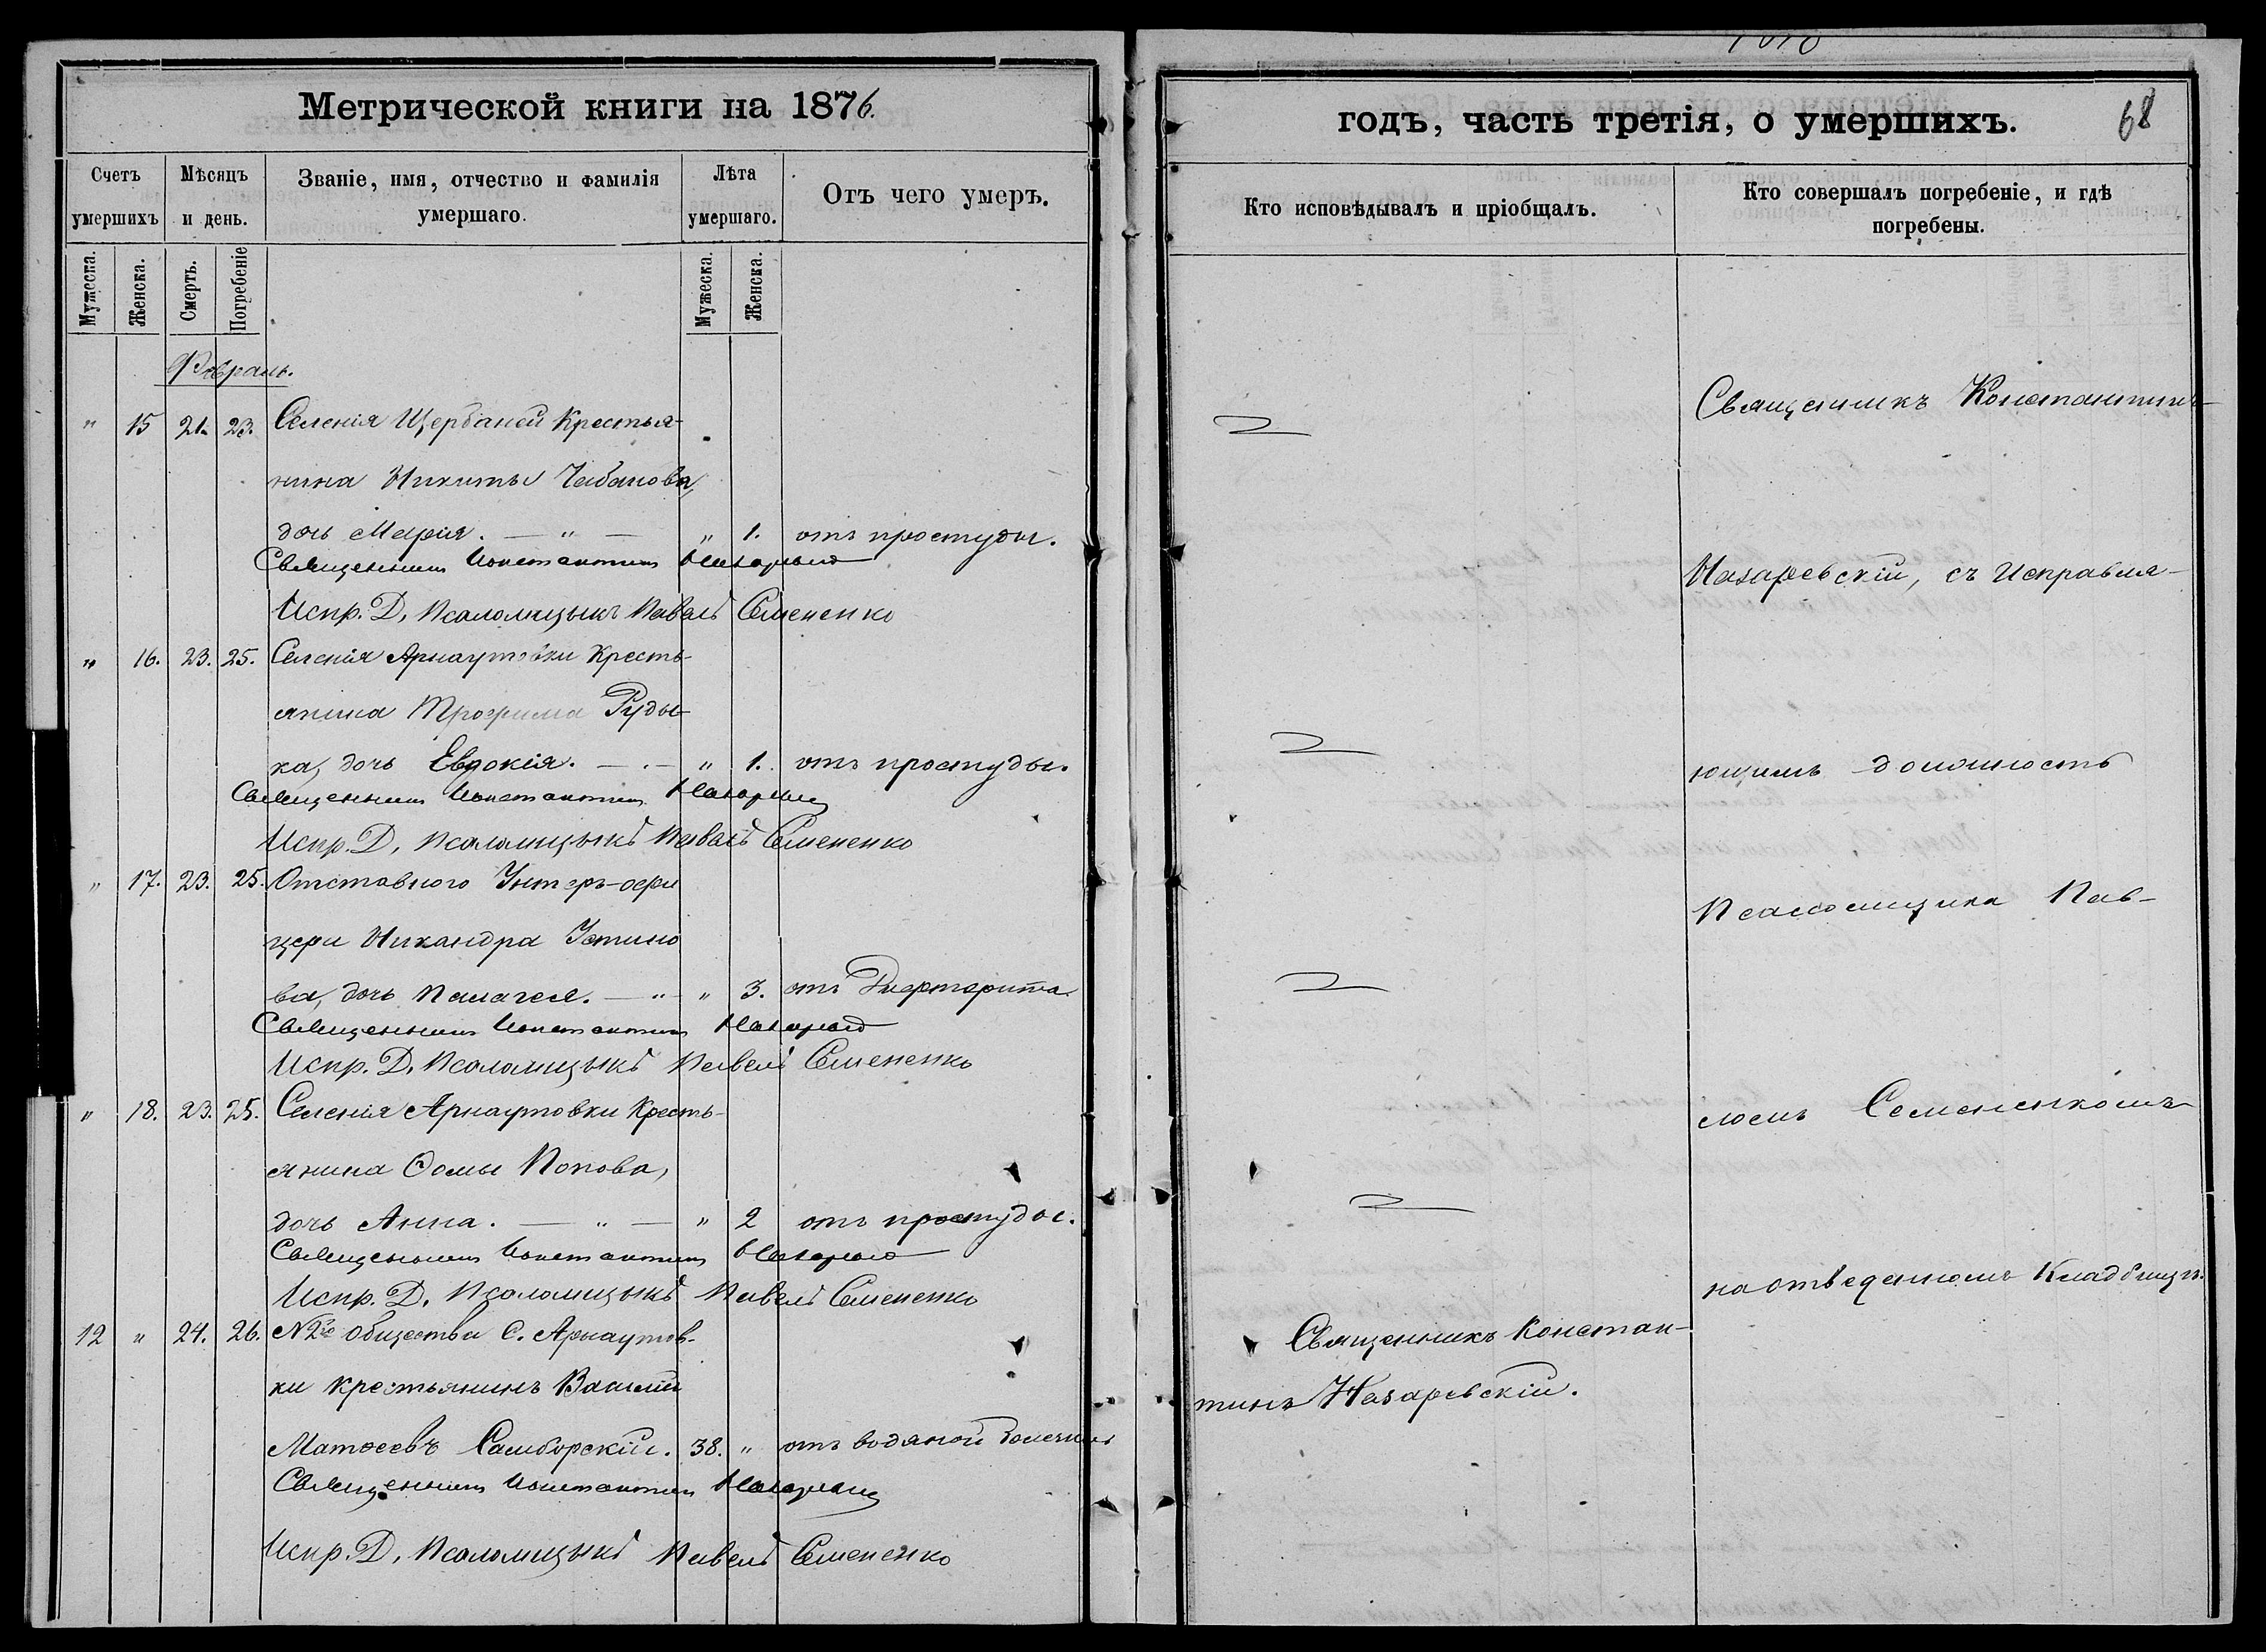 Метрической книги на 1876.
Счетъ умершихъ
Мѣсяцъ и день.
Званіе, имя, отчество и фамилія умершаго.
Лѣта умершаго.
Отъ чего умеръ.
Мужеска.
Женска.
Смерть.
Погребеніе
Мужеска.
Женска.
Февраль.
" 15 21. 23. Селенія Щербаней Крестья-
нина Никиты Чабанова,
дочь Марія. — " — " 1. отъ простуды.
Священникъ Константинъ
Испр. Д. Псаломщыкъ Павелъ Семененко
" 16. 23. 25. Селенія Арнаутовки Кресть-
янина Трофима Руды-
ка, дочь Евдокія. — " 1. отъ простуды.
Священникъ Константинъ
Испр. Д. Псаломщыкъ Павелъ Семененко
" 17. 23. 25. Отставного Унтеръ-офи
цера Никандра Устино
ва, дочь Палагея. — " — " 3. отъ Дифтерита
Священникъ Константинъ
Испр. Д. Псаломщыкъ Павелъ Семененко
" 18. 23. 25. Селенія Арнаутовки Кресть-
янина Ѳомы Попова,
дочь Анна. — " — " 2 отъ простуды.
Священникъ Константинъ
Испр. Д. Псаломщыкъ Павелъ Семененко
12 " 24. 26. №2го общества С. Арнаутов-
ки крестьянинъ Василій
Матѳеевъ Самборскій. 38. " отъ водяной болезни
Священникъ Константинъ
Испр. Д. Псаломщыкъ Павелъ Семененко
годъ, часть третія, о умершихъ.
68
Кто исповѣдывалъ и пріобщалъ.
Кто совершалъ погребеніе, и гдѣ
погребены.
Священникъ Константинъ
Назаревскій, съ Исправля-
ющимъ должность
Псаломщика Пав-
ломъ Семененкомъ
на отведенномъ Кладбищѣ.
Священникъ Констан-
тинъ Назаревскій.